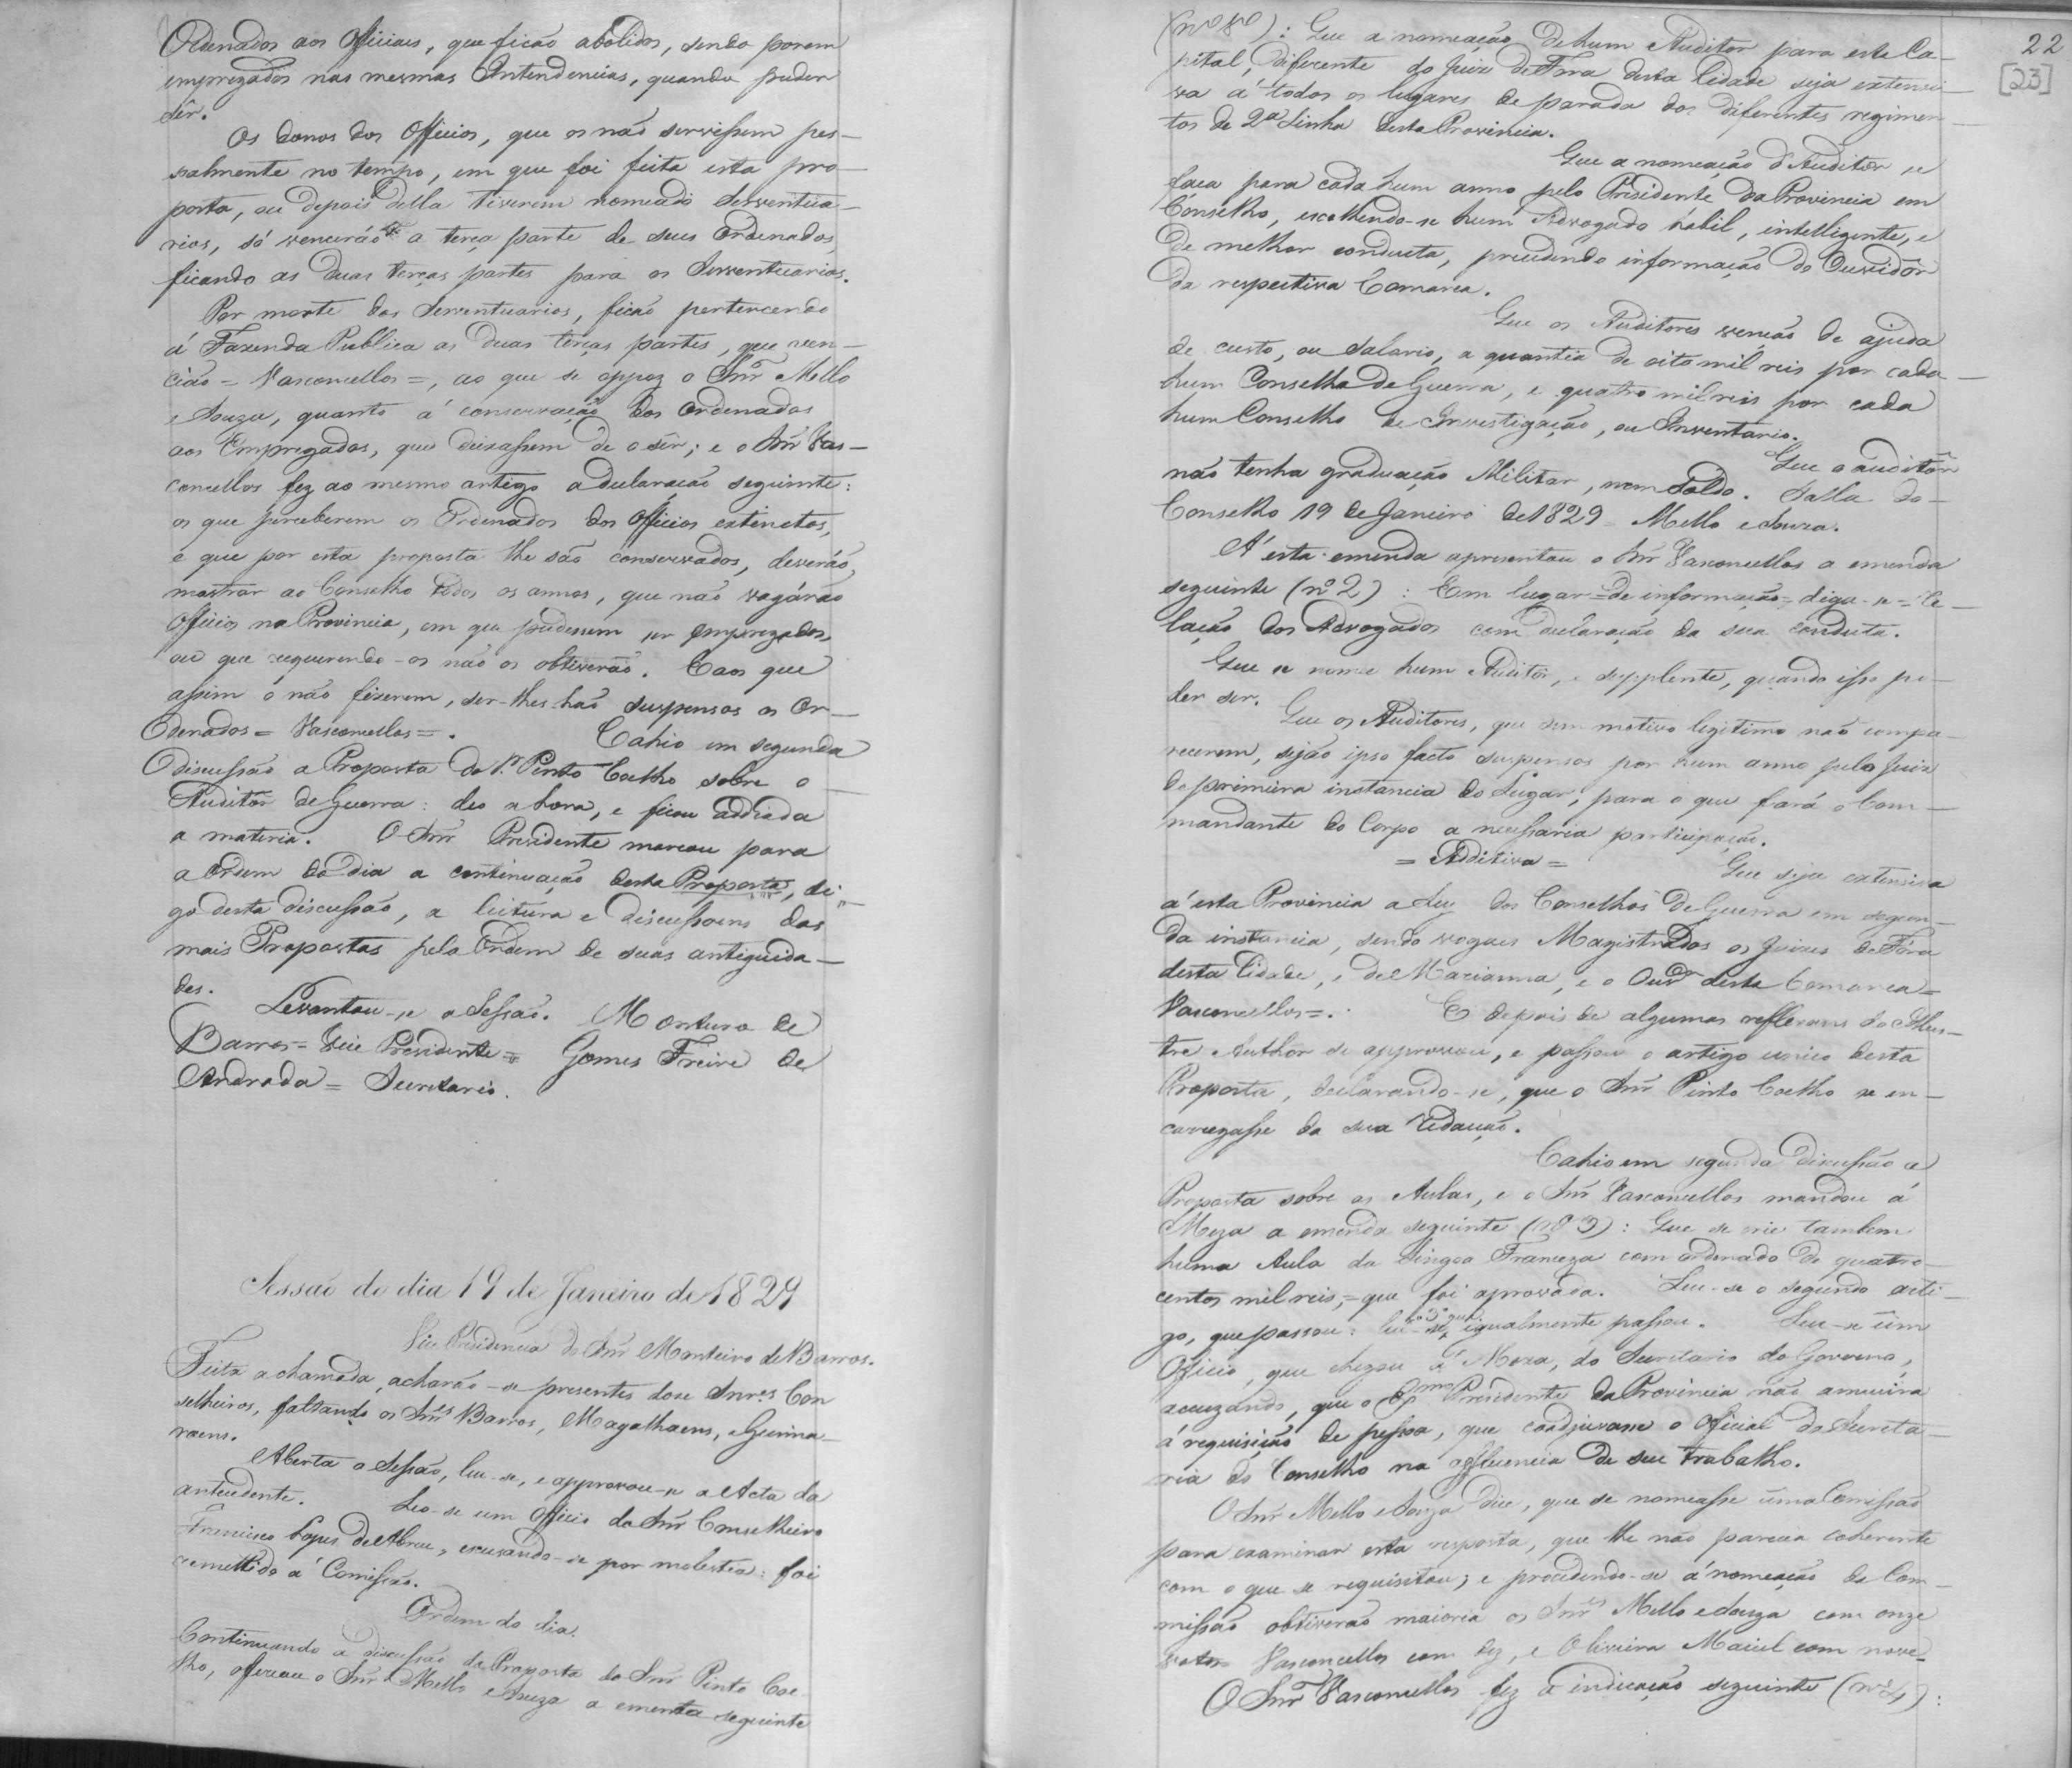 Ordenados aos Officiaes, que ficão abolidos, sendo porem
empregados nas mesmas Intendencias, quando puder
sêr.
Os donos dos Officios, que os não servissem pes-
soalmente no tempo, em que foi feita esta pro-
posta, ou depois della tiverem nomeado Serventua-
rios, só vencerão a terça parte de seus Ordenados,
ficando as duas terças partes para os Serventuarios.
Por morte dos Serventuarios, ficão pertencendo
á Fazenda Publica as duas terças partes, que ven-
cião = Vasconcellos =, ao que se oppoz o Snr Mello
e Souza, quanto á conservação dos Ordenados
aos Empregados, que deixassem de o sêr; e o Snr Vas-
concellos fez ao mesmo artigo a declaração seguinte:
os que perceberem os Ordenados dos Officios extinctos,
e que por esta proposta lhe são conservados, deverão,
mostrar ao Conselho todos os annos, que não vagárão
Officios na Provincia, em que pudessem ser empregados,
ou que requerendo-os não os obtiverão. E aos que
assim o não fizerem, ser-lhes-hão suspensos os Or-
denados = Vasconcellos =. Cahio em segunda
discussão a Proposta do Sr. Pinto Coelho sobre o
Auditôr de Guerra: deo a hora, e ficou addiada
a materia. O Snr Presidente marcou para
a Ordem do dia a continuação desta Proposta, di-
go desta discussão, a leitura e discussoens das
mais Propostas pela Ordem de suas antiguida-
des.
Levantou-se a Sessão. Monteiro de
Barros = Vice Presidente = Gomes Freire de
Andrada = Secretario.
Sessão do dia 19 de Janeiro de 1829
Vice Presidencia do Snr Monteiro de Barros.
Feita a chamada, acharão-se presentes doze Snres Con
selheiros, faltando os Snres Barros, Magalhaens, e Guima-
raens.
Aberta a Sessão, leu-se, e approvou-se a Acta da
antecedente. Leo-se um Officio do Snr Conselheiro
Francisco Lopes de Abreu, escusando-se por molestia: foi
remettido á Comissão.
Ordem do dia.
Continuando a discussão da Proposta do Snr Pinto Coe-
lho, offereceu o Snr Mello e Souza a emenda seguinte
22
[23]
: Que a nomeação de hum Auditor para esta Ca-
pital, diferente do Juiz de Fora desta Cidade seja extensi-
va á todos os lugares de parada dos diferentes regimen-
tos de 2ª Linha desta Provincia.
Que a nomeação d'Auditôr se
faça para cada hum anno pelo Presidente da Provincia em
Conselho, escolhendo-se hum Advogado habil, intelligente, e
de melhor conducta, precedendo informação do Ouvidôr
da respectiva Comarca.
Que os Auditores vencão de ajuda
de custo, ou Salario, a quantia de oito mil reis por cada
hum Conselho de Guerra, e quatro mil reis por cada
hum Conselho de Investigação, ou Inventario.
Que o auditôr
não tenha graduação Militar, nem Soldo. Salla do
Conselho 19 de Janeiro de 1829 = Mello e Souza.
A' esta emenda apresentou o Snr Vasconcellos a emenda
seguinte (nº 2) : Em lugar = de informação = diga-se = Re-
lação dos Advogados com declaração da sua conducta.
Que se nomee hum Auditôr, e supplente, quando isso pu-
der ser.
Que os Auditores, que sem motivo legitimo não compa-
recerem, sejão ipso facto suspensos por hum anno pelo Juiz
de primeira instancia do Lugar, para o que fará o Com-
mandante do Corpo a necessaria participação.
= Additiva =
Que seja extensiva
á esta Provincia a Ley dos Conselhos de Guerra em segun-
da instancia, sendo vogaes Magistrados os Juizes de Fóra
desta Cidade, e de Marianna, e o Ouvor desta Comarca =
Vasconcellos =. E depois de algumas reflexoens do Illus-
tre Author se approvou, e passou o artigo unico desta
Proposta, declarando-se, que o Snr Pinto Coelho se en-
carregasse da sua redacção.
Cahio em segunda discussão a
Proposta sobre as Aulas, e o Snr Vasconcellos mandou á
Meza a emenda seguinte (nº 3) : Que se crie tambem
huma Aula da Lingoa Franceza com ordenado de quatro-
centos mil reis, = que foi aprovada. Leu-se o segundo arti-
go, que passou: leu-se o 3º que igualmente passou. Leu-se um
Officio, que chegou á Meza, do Secretario do Governo,
acuzando, que o Exmo Presidente da Provincia não annuira
á requisição de pessoa, que coadjuvasse o Oficial da Secreta-
ria do Conselho na affluencia de seu trabalho.
O Snr Mello e Souza dice, que se nomeasse uma Comissão
para examinar esta resposta, que lhe não parecia coherente
com o que se requisitou; e procedendo-se á nomeação da Com-
missão obtiverão maioria os Snres Mello e Souza com onze
votos Vasconcellos com dez, e Oliveira Maciel com nove.
O Snr Vasconcellos fez a indicação seguinte (nº 4) :